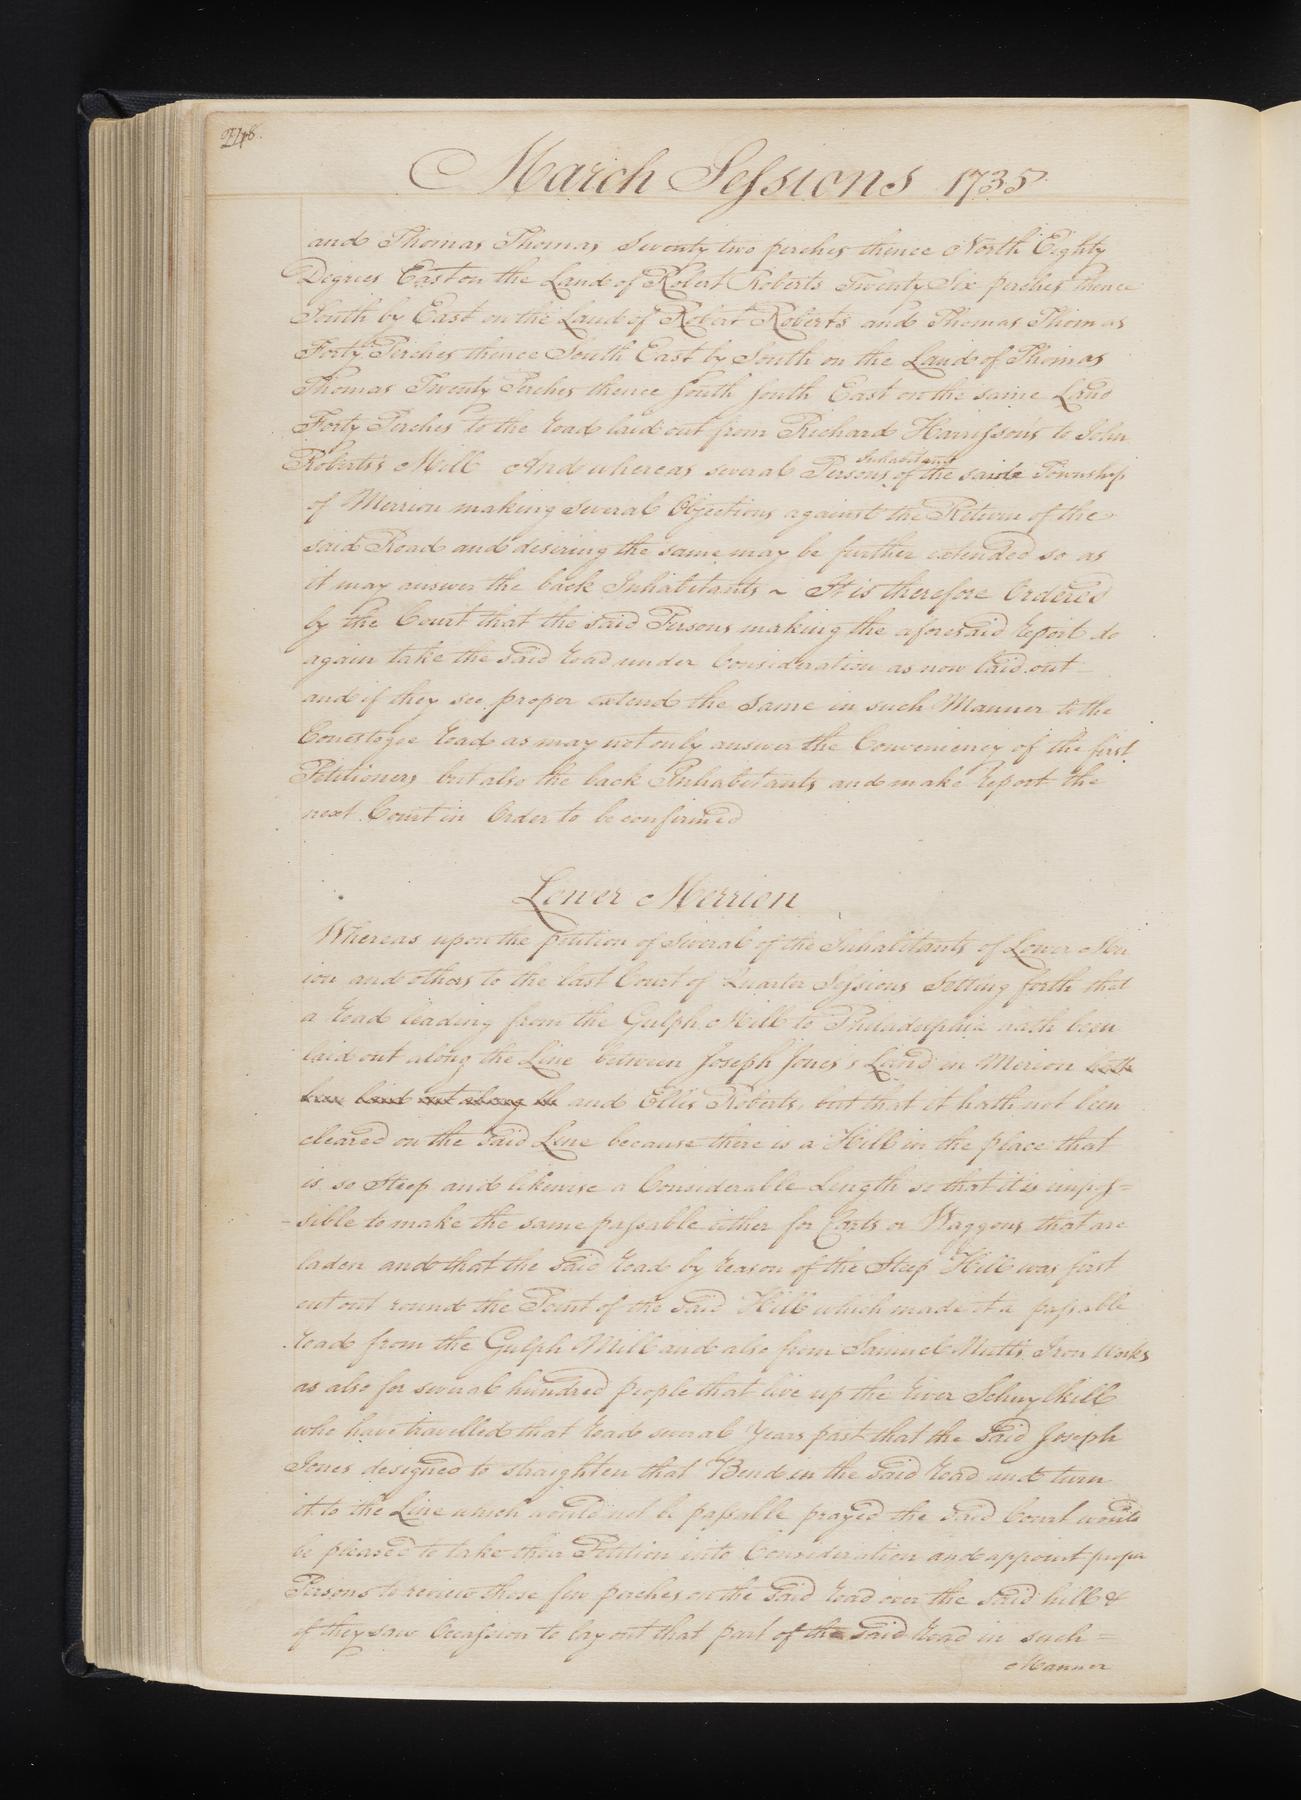 248.
March Sessions 1735
and Thomas Thomas Seventy two perches thence North Eighty
Degrees East on the Land of Robert Roberts Twenty Six perches thence
South by East on the Land of Robert Roberts and Thomas Thomas
Forty Perches thence South East by South on the Land of Thomas
Thomas Twenty Perches thence South South East on the same Land
Forty Perches to the road laid out from Richard Harrisson's to John
Roberts's Mill And whereas several Persons Inhabitants of the saide Township
of Merrion making several Objections against the Return of the
said Road and desiring the same may be further extended so as
it may answer the back Inhabitants ~ It is therefore Ordered
by the Court that the said Persons making the aforesaid report do
again take the said road under Consideration as now laid out
and if they see proper extend the same in such Manner to the
Conestogoe road as may not only answer the Conveniency of the first
Petitioners but also the back Inhabitants and make report the
next Court in Order to be confirmed
Lower Merrion
Whereas upon the petition of several of the Inhabitants of Lower Mer
ion and others to the last Court of Quarter Sessions Setting forth that
a road leading from the Gulph Mill to Philadelphia hath been
laid out along the Line between Joseph Jones's Land in Merion hath
been laid out along the and Ellis Roberts, but that it hath not been
cleared on the said Line because there is a Hill in the place that
is so Steep and likewise a Considerable Length so that it is impos=
-sible to make the same passable either for Carts or Waggons that are
laden and that the said road by reason of the Steep Hill was first
cut out round the Point of the said Hill which made it a passable
road from the Gulph Mill and also from Samuel Nutt's Iron Works
as also for several hundred people that live up the river Schuylkill
who have travelled that road several Years past that the said Joseph
Jones designed to straighten that Bend in the said road and turn
it to the Line which would not be passable prayed the said Court would
be pleased to take their Petition into Consideration and appoint proper
Persons to review those few perches on the said road over the said hill &
if they saw Occassion to lay out that part of the said road in such =
Manner